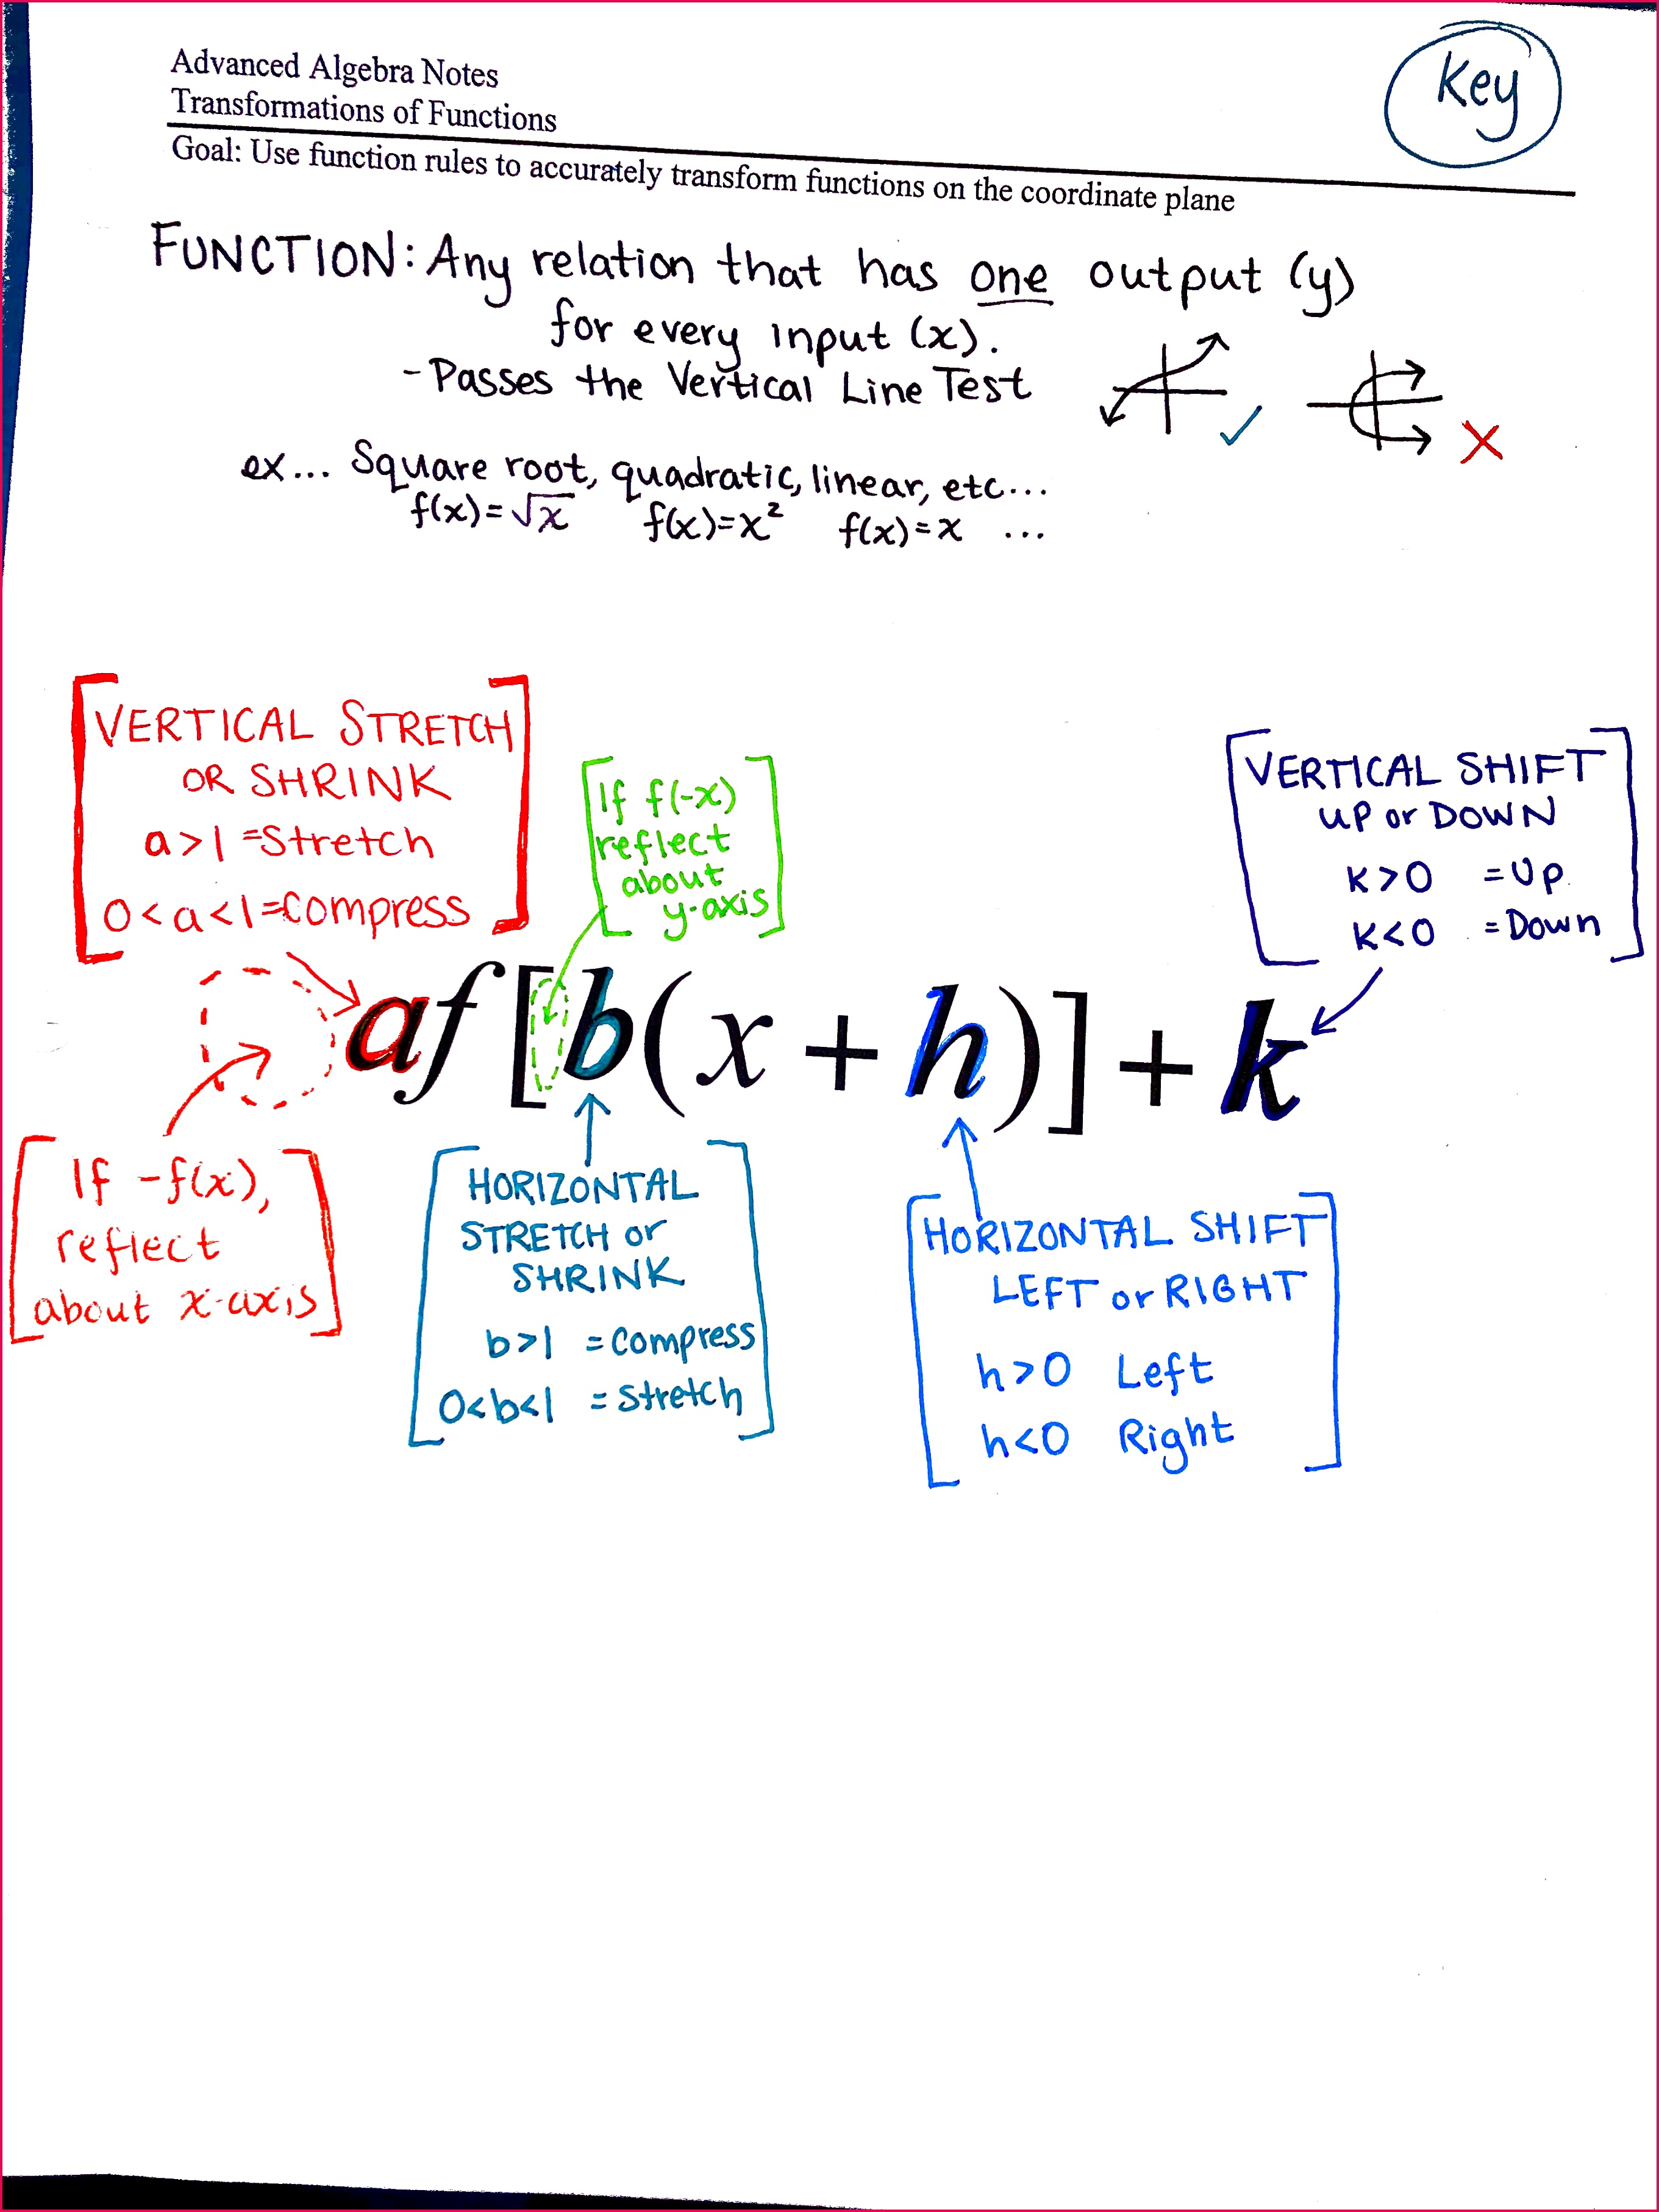 Advanced Algebra Notes
Transformations of Functions
Key
Goal: Use function rules to accurately transform functions on the coordinate plane
FUNCTION: Any relation that has one output (y)
for every input (x).
- Passes the Vertical Line Test
ex... Square root, quadratic, linear, etc...
f(x)=√x f(x)=x² f(x)=x ...
VERTICAL STRETCH
OR SHRINK
a>1 =Stretch
0<a<1=compress
If f(-x)
reflect
about
y-axis
VERTICAL SHIFT
UP or DOWN
k>0 =Up
k<0 =Down
af[b(x+h)]+k
If -f(x),
reflect
about x-axis
HORIZONTAL
STRETCH or
SHRINK
b>1 =compress
0<b<1 =stretch
HORIZONTAL SHIFT
LEFT or RIGHT
h>0 Left
h<0 Right